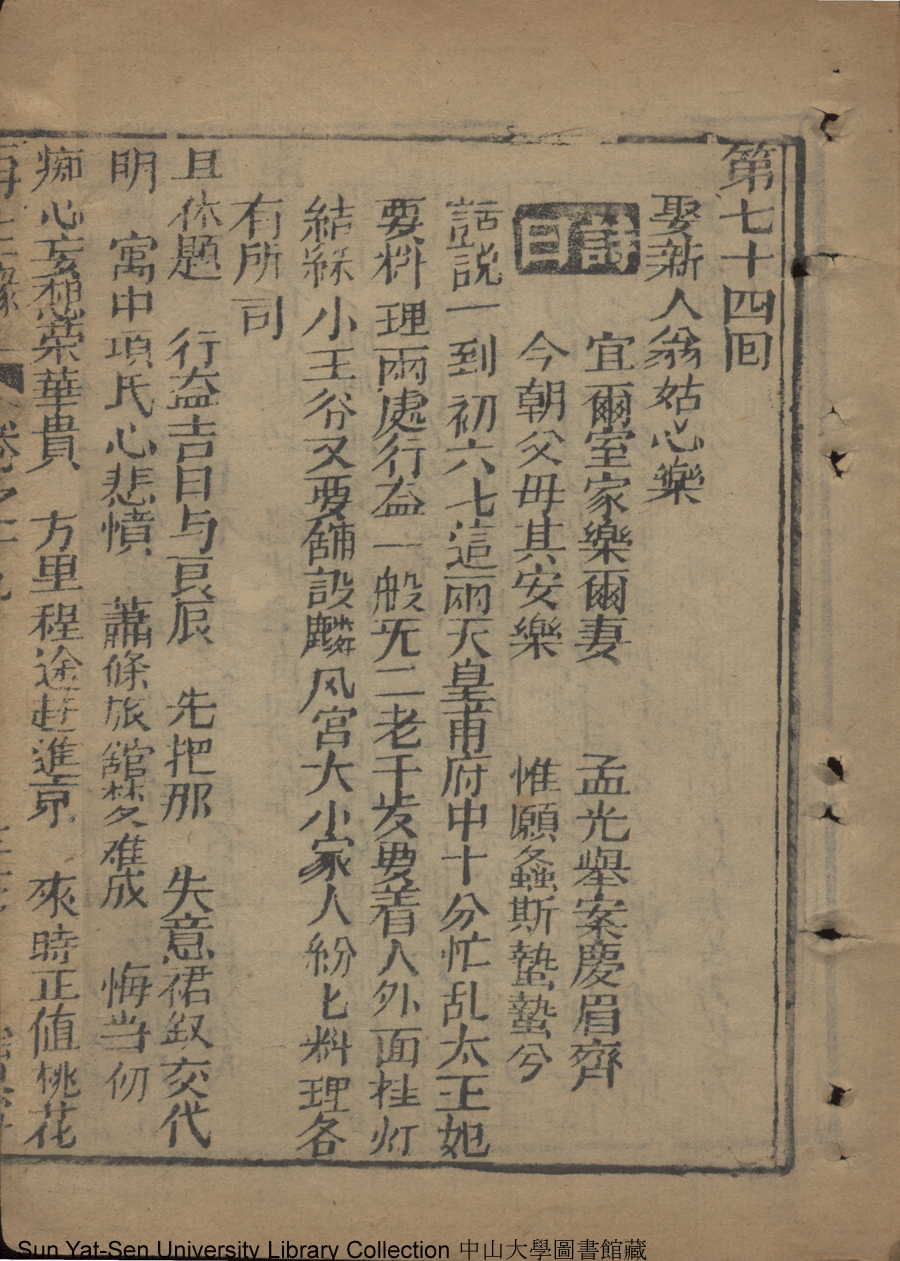 第七十四回
娶新人翁姑心樂
宜爾室家樂爾妻 孟光舉案慶眉齊
詩曰 今朝父毋其安樂 惟願螽斯蟄蟄兮
話説一到初六七這兩天皇甫府中十分忙乱太王妃
要料理兩處行益一般无二老千歩要着人外面挂灯
結綵小王爷又要舖設麟风宫大小家人紛匕料理各
有所司
且休題 行益吉日与良辰 先把那 失意裙釵交代
明 寓中項氏心悲憤 蕭條旅舘梦难成 悔当初
痴心妄想荣華貴 方里程途赶進京 來時正值桃花
再生縁 卷之十九
Sun Yat-Sen University Library Collection 中山大學圖書館藏